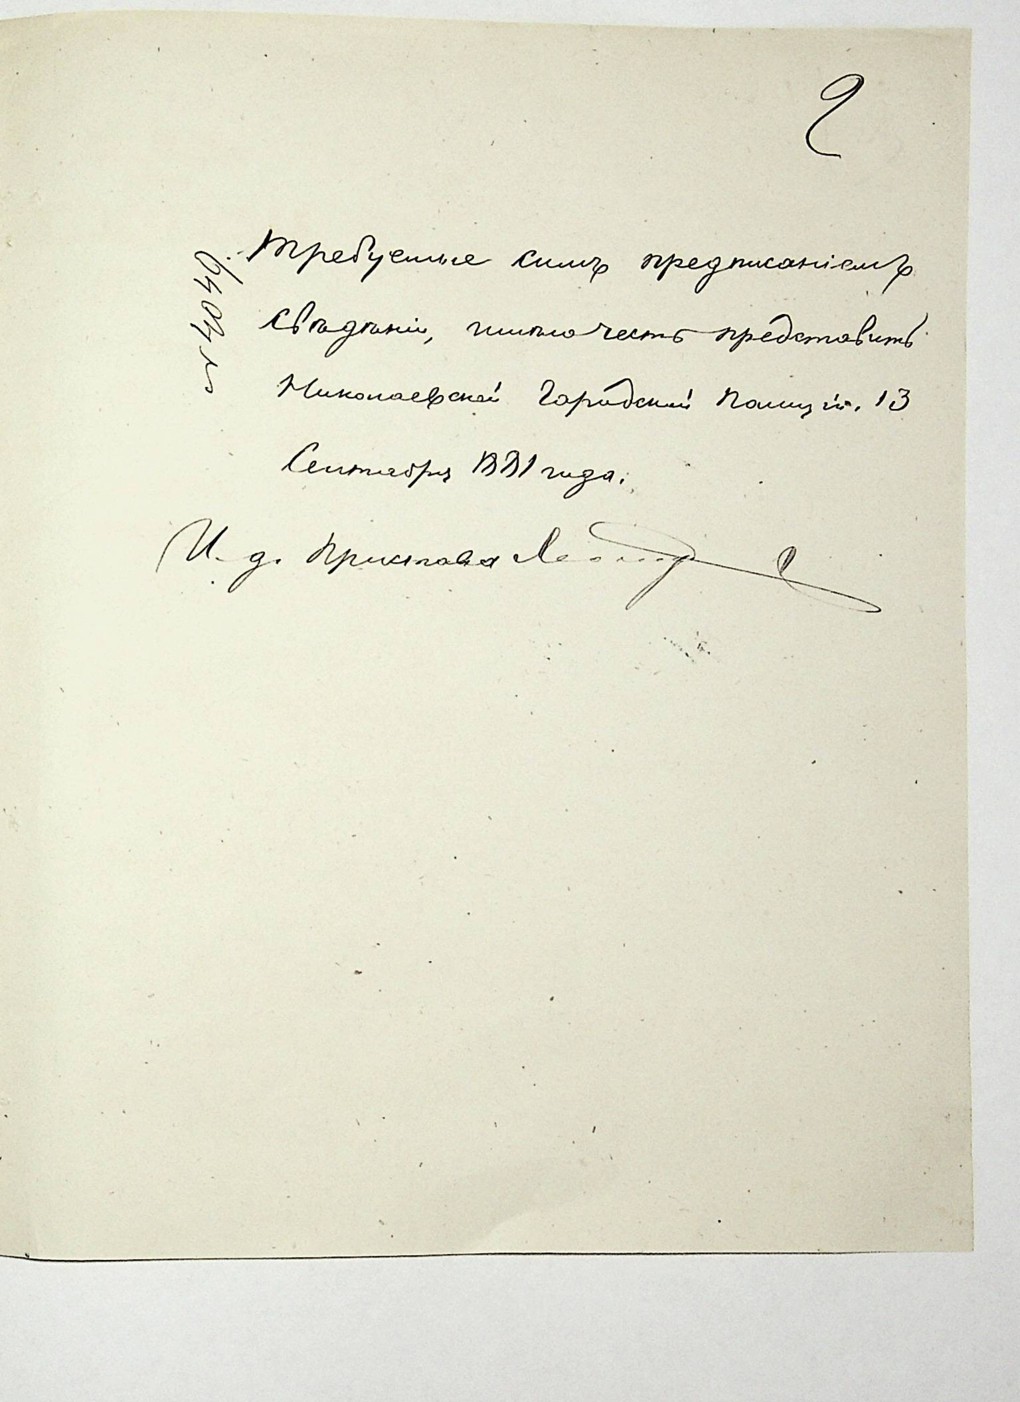 2
Требуемые симъ предписаніемъ
свѣдѣнія, имѣю честь представить
Николаевской Городской Полиціи. 13
Сентября 1881 года.
И. д. Пристава